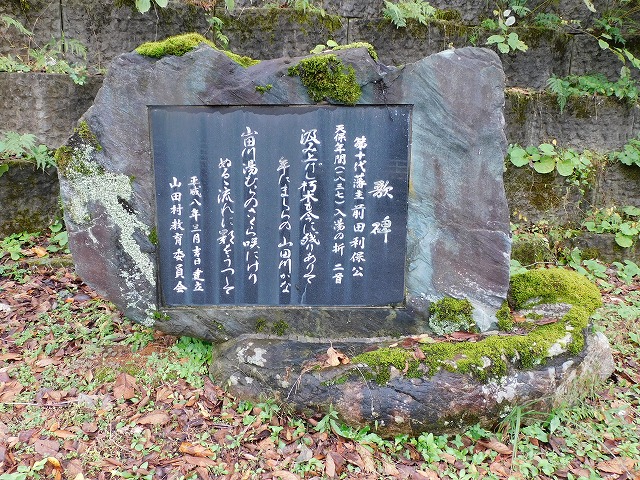 歌碑
第十代藩主前田利保公
天保年間(一八三七)入湯の折 二首
汲み上げし朽木も今に残りありて
年たましらの 山田川かな
山田の湯むらのさくら咲にけり
ぬる流れに影をうつして
平成八年三月吉日建立
山田村教育委員会